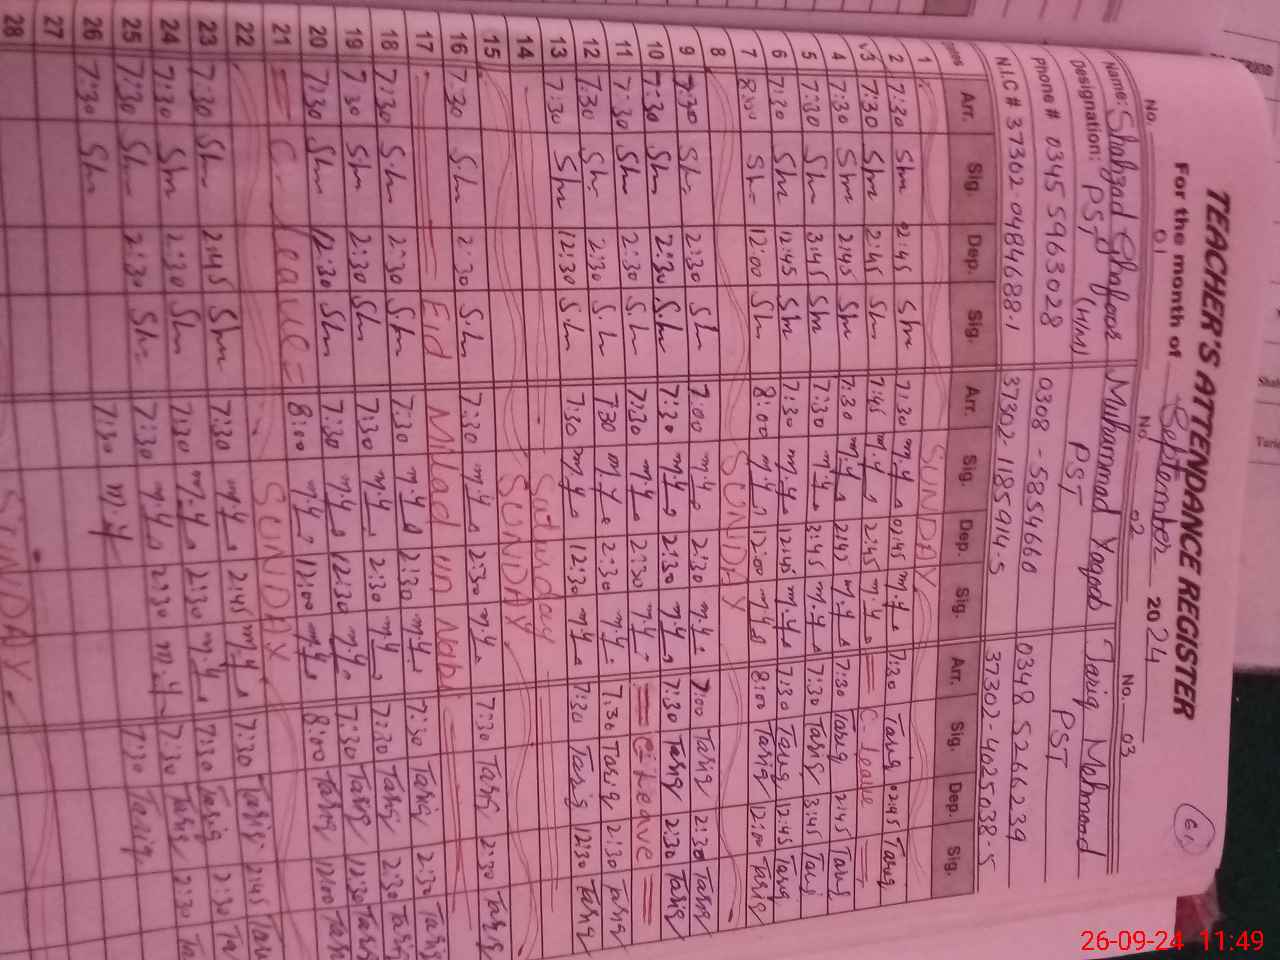 TEACHER'S ATTENDANCE REGISTER
For the month of September 2024
No. 01 No. 02 No. 03
Name: Shahzad Ghafoor Muhammad Yaqoob Tariq Mehmood
Designation: PST (H/M) PST PST
Phone # 0345 5963028 0308-5854660 0348 5266239
N.I.C # 37302-0484688-1 37302-1185914-5 37302-4025038-5
Arr. Sig. Dep. Sig. Arr. Sig. Dep. Sig. Arr. Sig. Dep. Sig.
1 SUNDAY
2 7:30 Shm 02:45 Shm 7:30 m.y 02:45 m.y 7:30 Tariq 02:45 Tariq
3 7:30 Shm 2:45 Shm 7:45 m.y 2:45 m.y C. leave
4 7:30 Shm 2:45 Shm 7:30 m.y 2:45 m.y 7:30 Tariq 2:45 Tariq
5 7:30 Shm 3:45 Shm 7:30 m.y 3:45 m.y 7:30 Tariq 3:45 Tariq
6 7:30 Shm 12:45 Shm 7:30 m.y 12:45 m.y 7:30 Tariq 12:45 Tariq
7 8:00 Shm 12:00 Shm 8:00 m.y 12:00 m.y 8:00 Tariq 12:00 Tariq
8 SUNDAY
9 7:30 Shm 2:30 Shm 7:00 m.y 2:30 m.y 7:00 Tariq 2:30 Tariq
10 7:30 Shm 2:30 Shm 7:30 m.y 2:30 m.y 7:30 Tariq 2:30 Tariq
11 7:30 Shm 2:30 Shm 7:30 m.y 2:30 m.y Leave
12 7:30 Shm 2:30 Shm 7:30 m.y 2:30 m.y 7:30 Tariq 2:30 Tariq
13 7:30 Shm 12:30 Shm 7:30 m.y 12:30 m.y 7:30 Tariq 12:30 Tariq
14 Saturday
15 SUNDAY
16 7:30 Shm 2:30 Shm 7:30 m.y 2:30 m.y 7:30 Tariq 2:30 Tariq
17 Eid Milad un Nabi
18 7:30 Shm 2:30 Shm 7:30 m.y 2:30 m.y 7:30 Tariq 2:30 Tariq
19 7:30 Shm 2:30 Shm 7:30 m.y 2:30 m.y 7:30 Tariq 2:30 Tariq
20 7:30 Shm 12:30 Shm 7:30 m.y 12:30 m.y 7:30 Tariq 12:30 Tariq
21 C. leave 8:00 m.y 12:00 m.y 8:00 Tariq 12:00 Tariq
22 SUNDAY
23 7:30 Shm 2:45 Shm 7:30 m.y 2:45 m.y 7:30 Tariq 2:45 Tariq
24 7:30 Shm 2:30 Shm 7:30 m.y 2:30 m.y 7:30 Tariq 2:30
25 7:30 Shm 2:30 Shm 7:30 m.y 2:30 m.y 7:30 Tariq 2:30
26 7:30 Shm 7:30 m.y 7:30 Tariq
27
28 SUNDAY
26-09-24 11:49